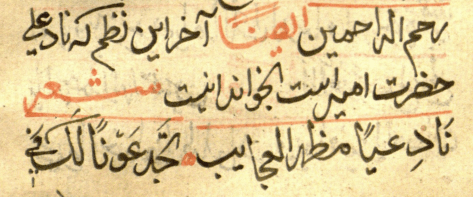 رحم الراحمین ایضاً آخر این نظم که ناد علی
حضرت امیر است بخواند اینست شعر
نَادِ عَلیًا مظهر العجایب تَجِدهُ عَوْنًا لَّکَ فی